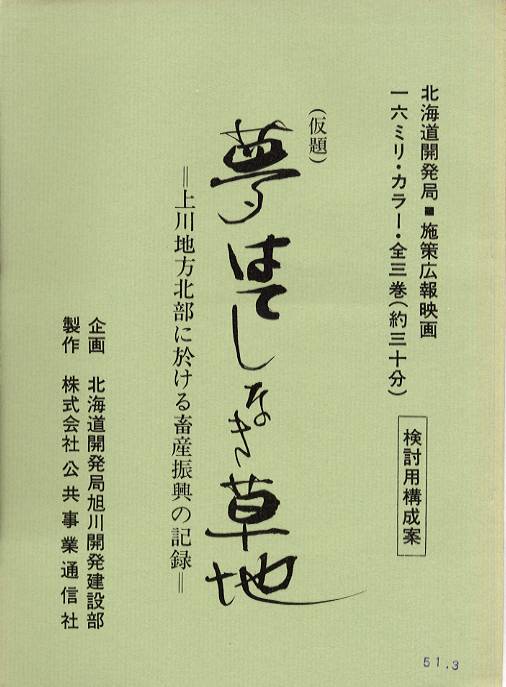 北海道開発局■施策広報映画
一六ミリ・カラー・全三巻(約三十分)
検討用構成案
(仮題)
夢はてしなき草地
＝上川地方北部に於ける畜産振興の記録＝
企画 北海道開発局旭川開発建設部
製作 株式会社公共事業通信社
51.3